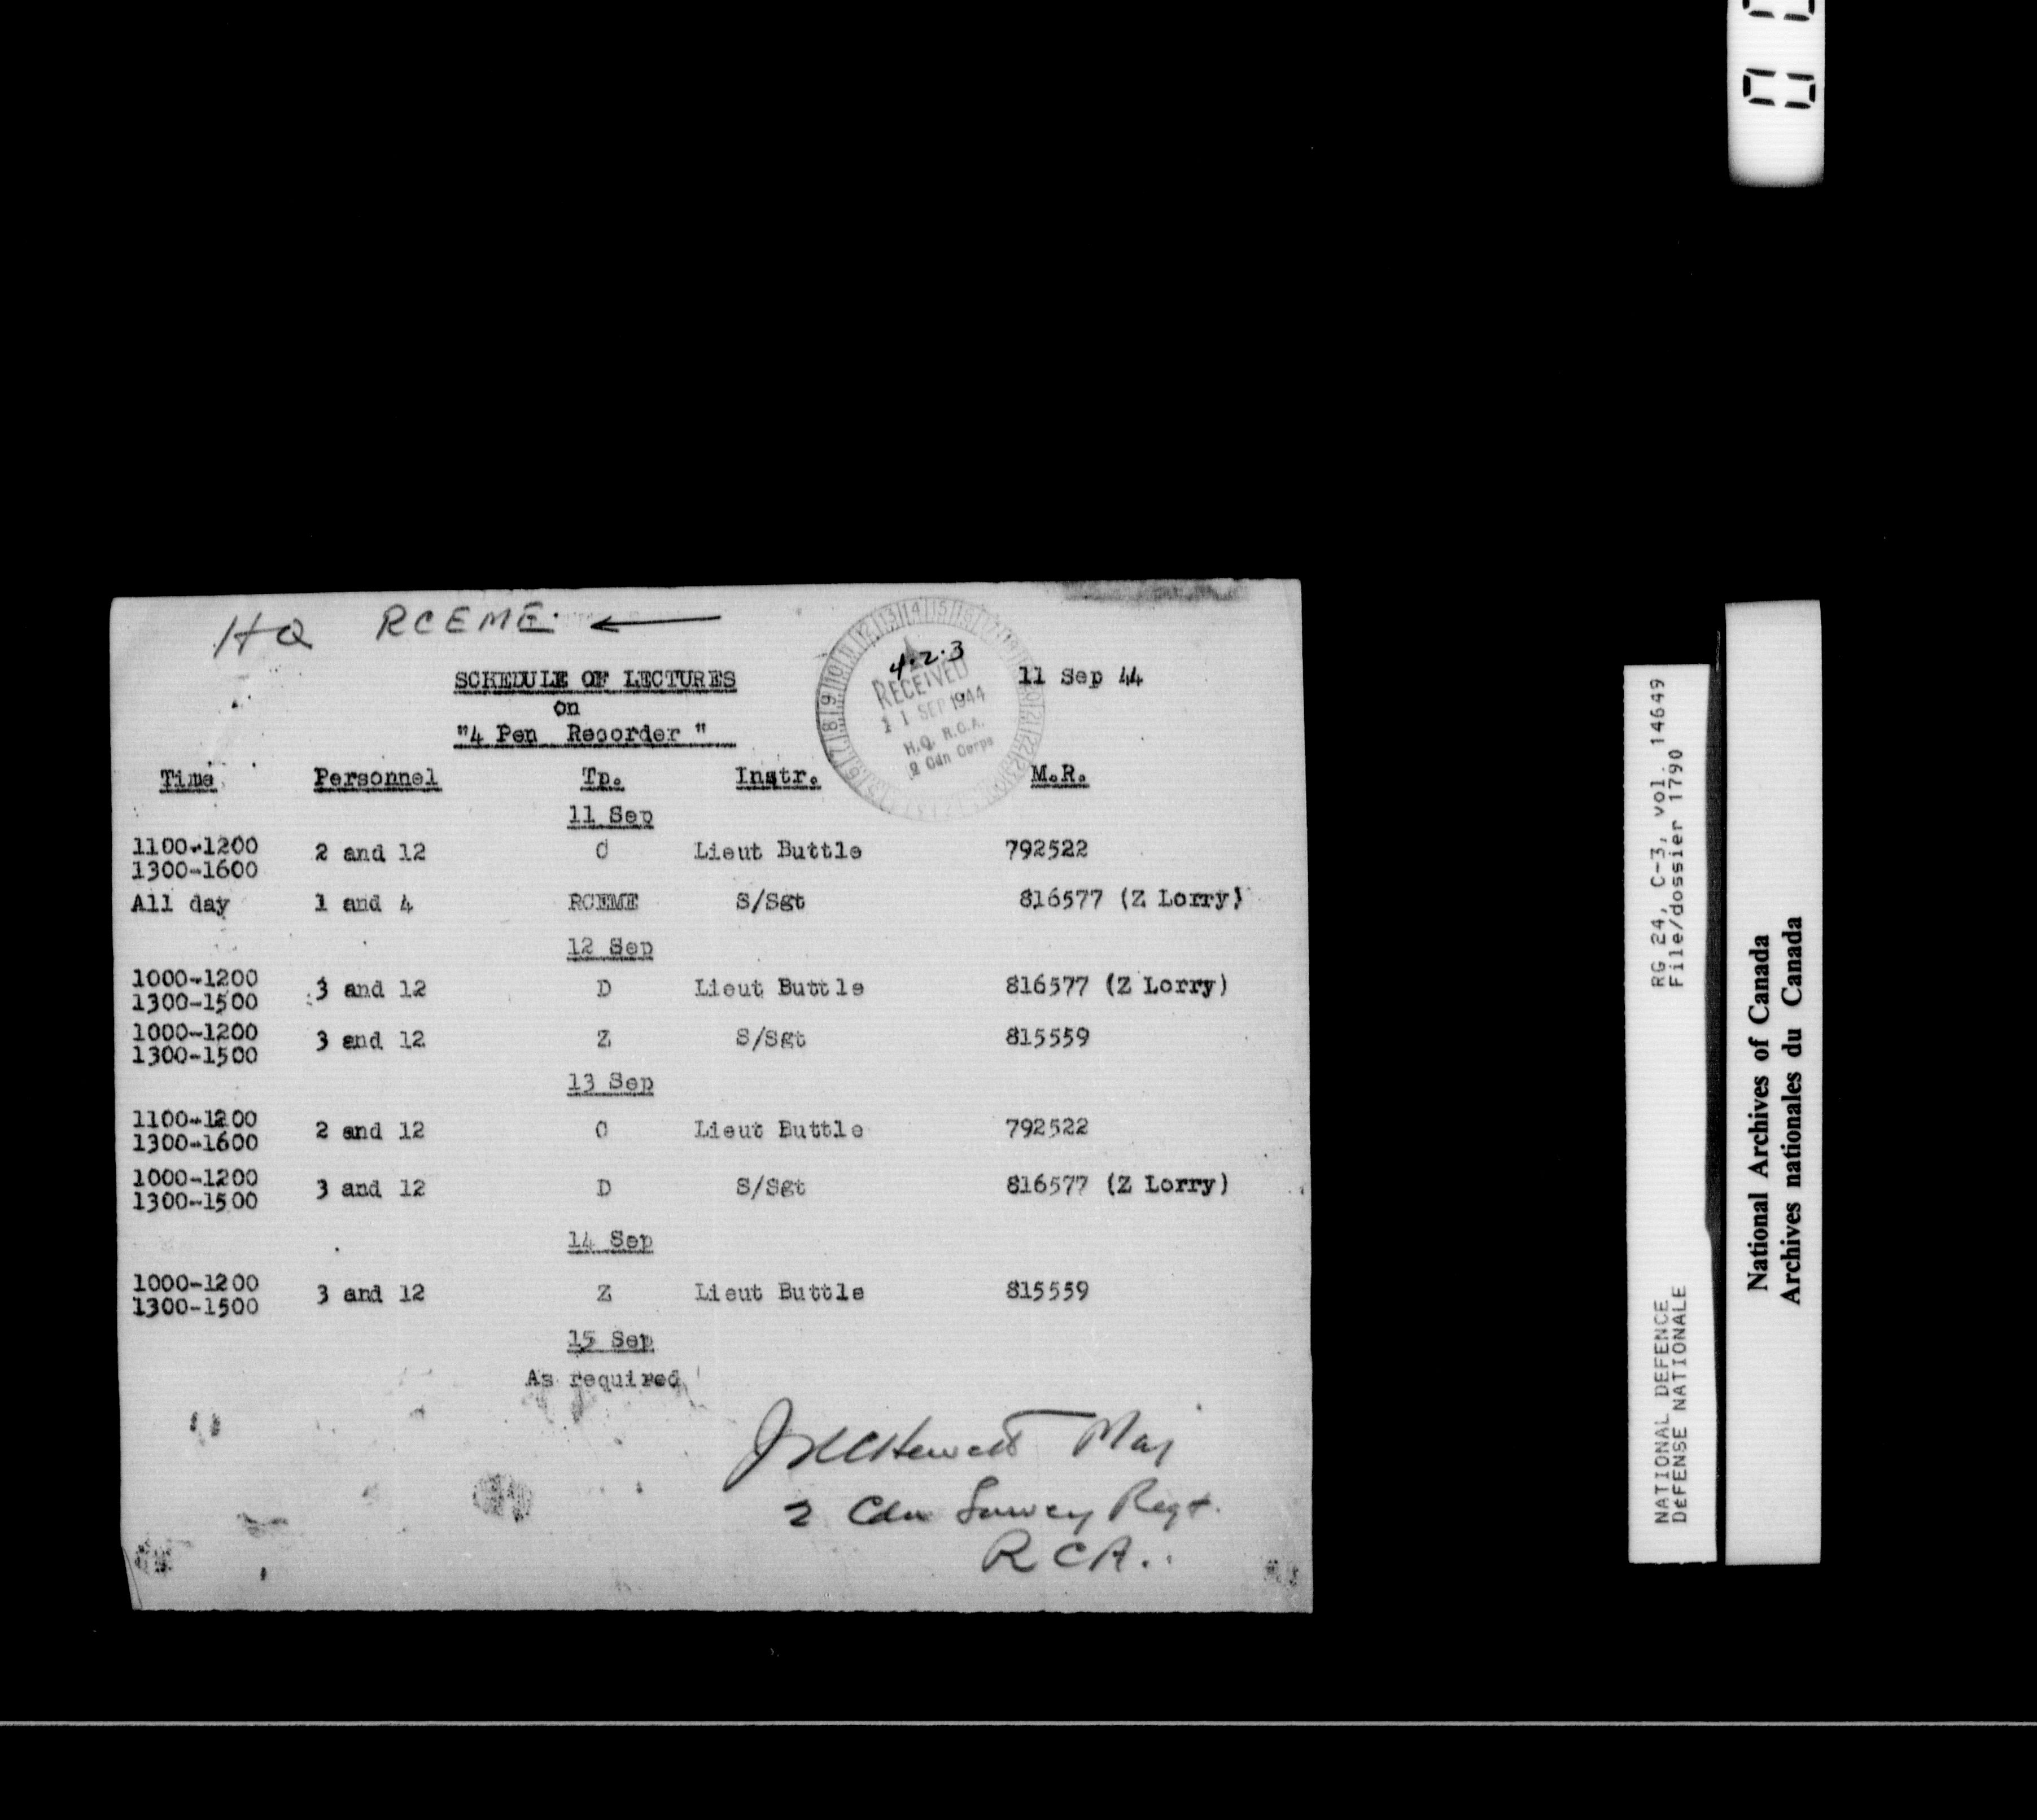 HQ RCEME.
4.2.3
RECEIVED
11 SEP 1944
H.Q. R.C.A.
2 Cdn Corps
11 Sep 44
SCHEDULE OF LECTURES
on
"4 Pen Recorder "
Time Personnel Tp. Instr. M.R.
11 Sep
1100-1200
1300-1600 2 and 12 C Lieut Buttle 792522
All day 1 and 4 RCEME S/Sgt 816577 (Z Lorry)
12 Sep
1000-1200
1300-1500 3 and 12 D Lieut Buttle 816577 (Z Lorry)
1000-1200
1300-1500 3 and 12 Z S/Sgt 815559
13 Sep
1100-1200
1300-1600 2 and 12 C Lieut Buttle 792522
1000-1200
1300-1500 3 and 12 D S/Sgt 816577 (Z Lorry)
14 Sep
1000-1200
1300-1500 3 and 12 Z Lieut Buttle 815559
15 Sep
As required
Maj
2 Cdn Survey Regt.
RCA.
RG 24, C-3, vol. 14649
File/dossier 1790
NATIONAL DEFENCE
DéFENSE NATIONALE
National Archives of Canada
Archives nationales du Canada